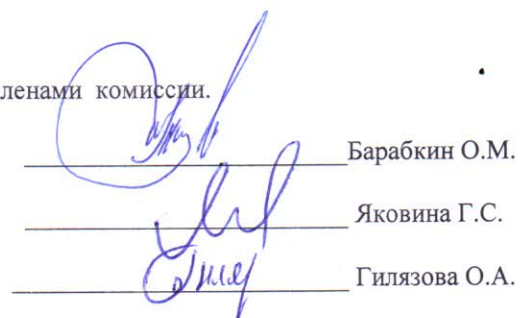 ленами комиссии.
Барабкин О.М.
Яковина Г.С.
Гилязова О.А.